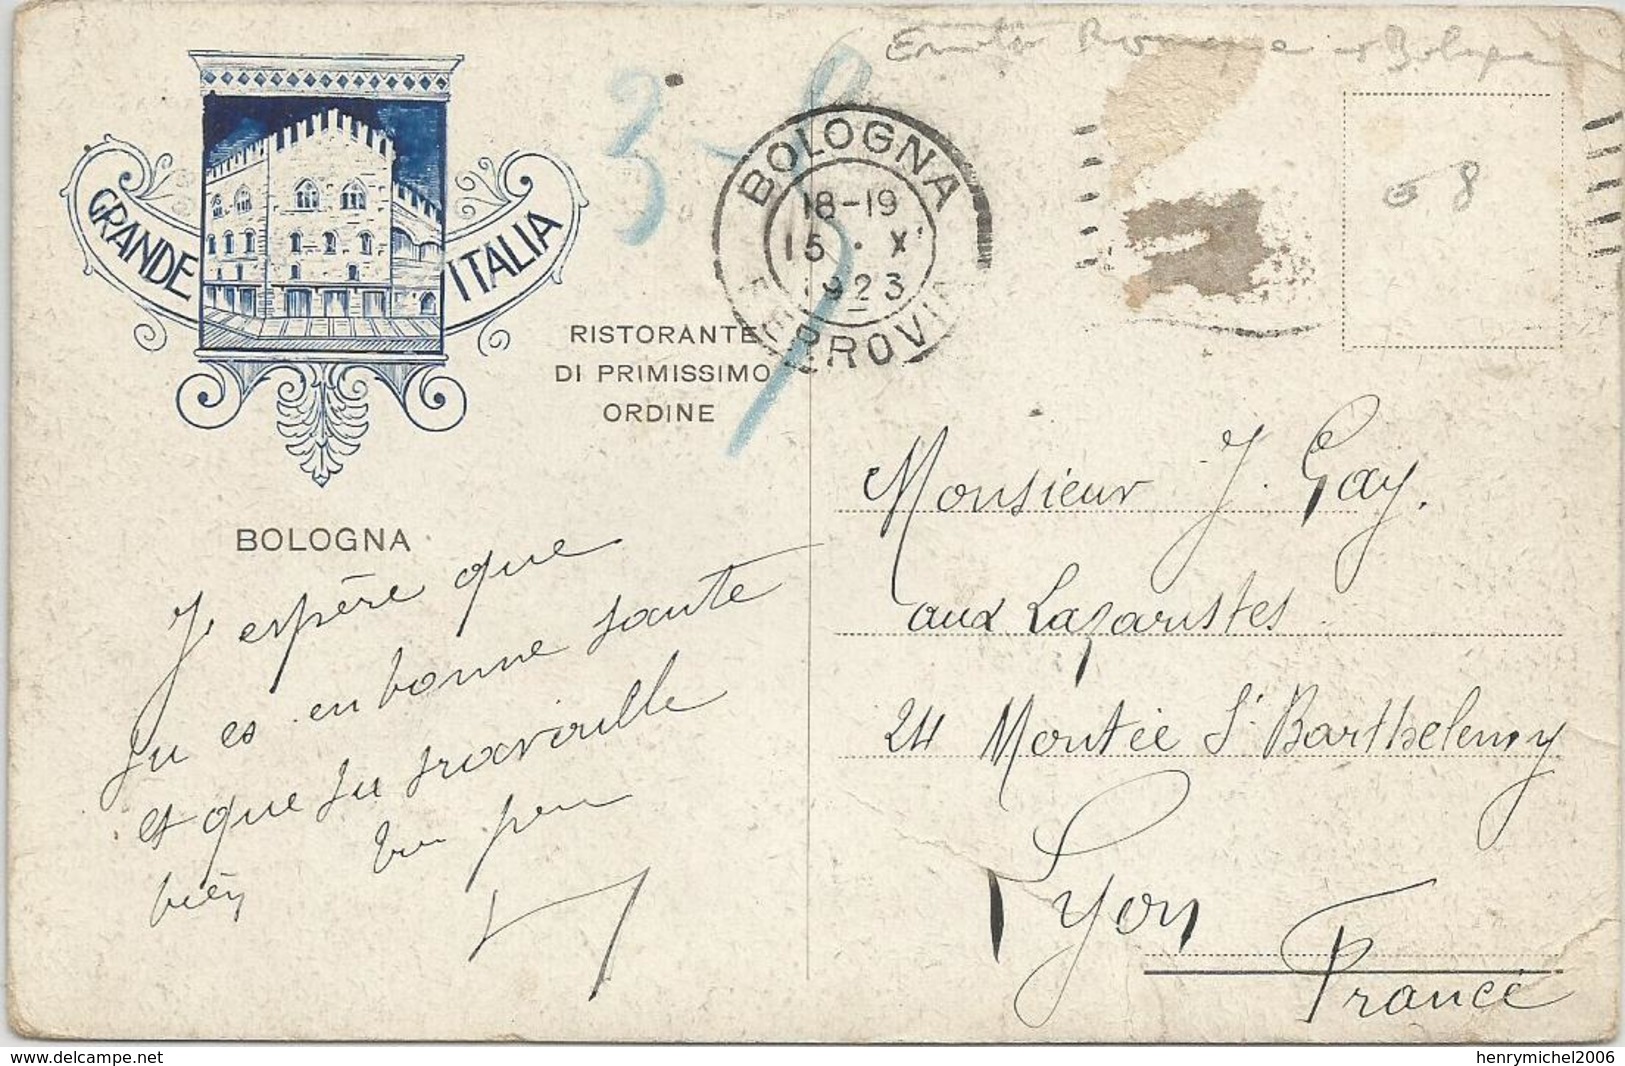 GRANDE ITALIA
RISTORANTE
DI PRIMISSIMO
ORDINE
BOLOGNA
BOLOGNA
18-19
15 · X
1923
FERROVIA
8
Monsieur J. Gay.
aux Lazaristes
24 Montée St Barthelemy
Lyon
France
J'espère que
tu es en bonne santé
et que tu travaille
bien
www.delcampe.net
henrymichel2006